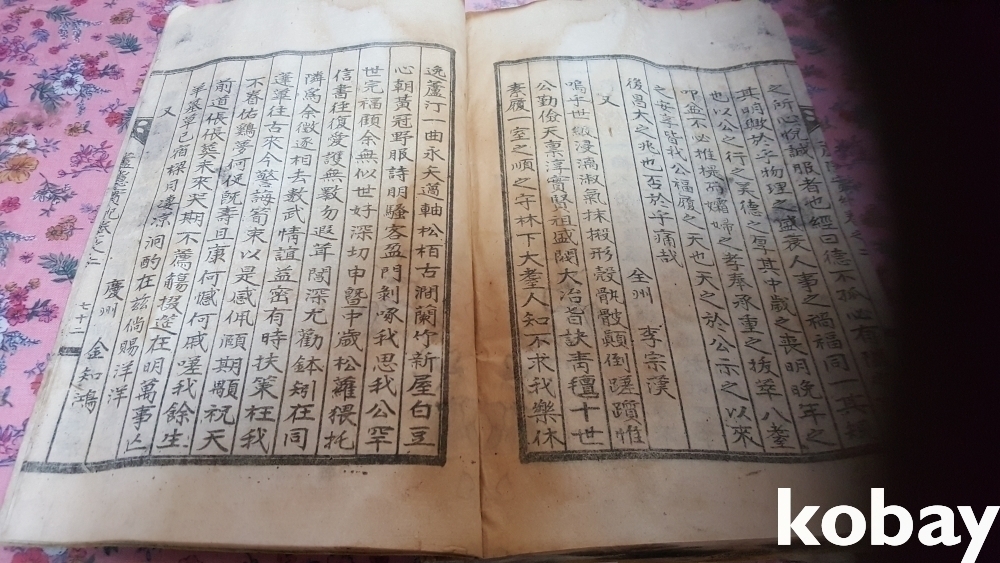 之所心悅誠服者也經曰德不孤必有
其明輿於乎物理之盛衰人事之禍福同一其
也以公之行之美德之厚其中歲之喪明晚年之
叩盆不必推橈而孀婦之孝奉承重之拔萃八耋
之安享皆我公福履之天也天之於公示之以來
後昌大之兆也否於乎痛哉
全州 李宗漢
又
嗚乎世級浸漓淑氣抹摋形殼骯骸顛倒蹉躓惟
公勤儉天稟淳實賢祖盛閥大冶旨訣靑氈十世
素履一室之順之守林下大耋人知不求我樂休
逸蘆汀一曲永矢薖軸松栢古澗蘭竹新屋白豆
心朝黃冠野服詩朋騷客盈門剝啄我思我公罕
世完福顧余無似世好深切申曁中歲松蘿猥托
信書往復愛護無斁勿遐茸闒深尤勸鉢矧在同
隣爲余徵逐相去數武情誼益密有時扶策枉我
蓬蓽往古來今警誨荀束以是感佩頤期顒祝天
不眷佑鷄夢何促旣壽且康何憾何戚嗟我餘生
前道倀倀筵未來天期不薦觴掇筵在明萬事亡
羊墓草已宿樑月凄凉泂酌在茲倘賜洋洋
慶州 金知鴻
又
七十二